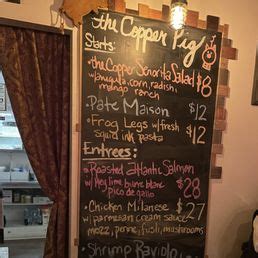 the Copper Pig
Starts:
•the Copper Senorita Salad $8
w/arugula, corn, radish,
mango ranch
• Pate Maison $12
• Frog Legs w/fresh $12
squid ink pasta
Entrees:
•Roasted atlantic Salmon
w/key lime burre blanc $28
pico de gallo
• Chicken Milanese $27
w/parmesan cream sauce
mozz, penne, fusli, mushrooms
Shrimp Raviolo